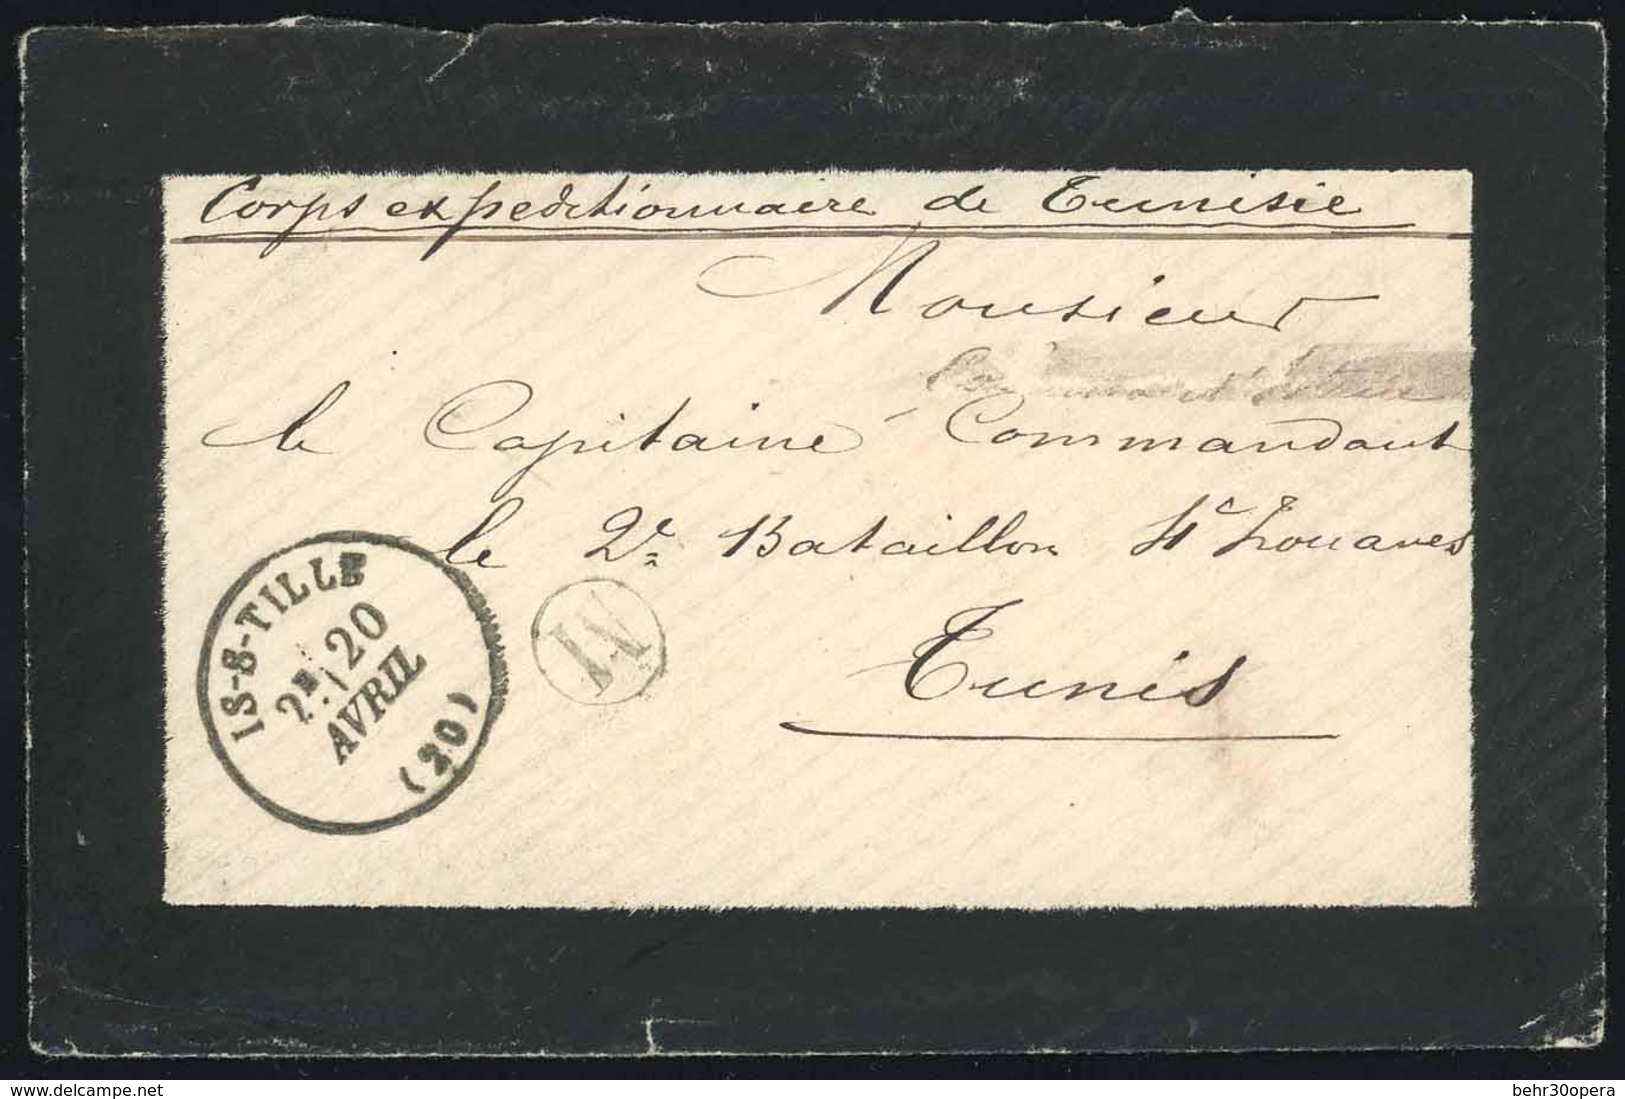 Corps expeditionnaire de Tunisie
Monsieur
le Capitaine Commandant
le 2e Bataillon 4e Zouaves
Tunis
IS-S-TILLE
2E 20
AVRIL
(20)
delcampe.net
behr30opera